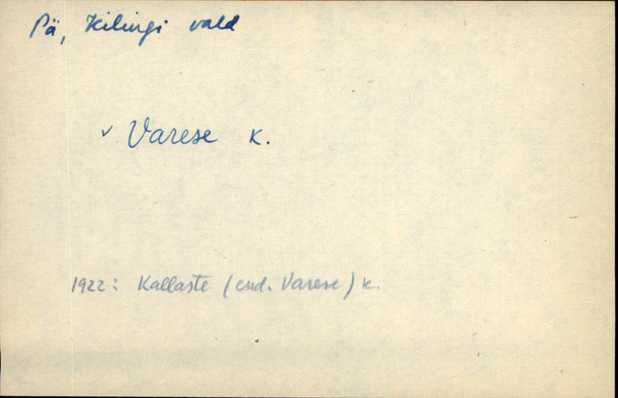 Pä, Kilingi vald
v Varese k.
1922: Kallaste (end. Varese) k.